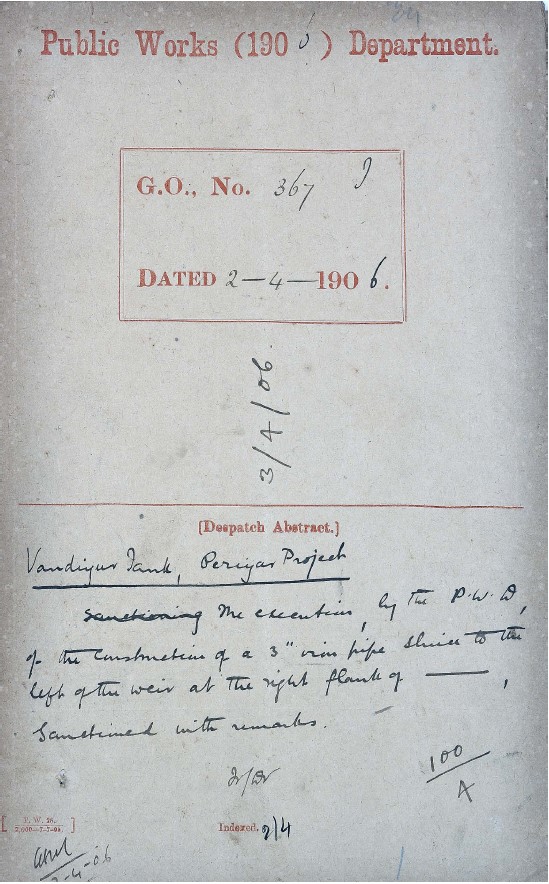 Public Works (1906) Department.
G.O., No. 367 I
DATED 2-4-1906.
3/4/06.
[Despatch Abstract.]
Vandiyur Tank, Periyar Project
Sanctioning The execution, by the P.W.D,
of the construction of a 3" iron pipe sluice to the
left of the weir at the right flank of ———,
Sanctioned with remarks.
100/A
[P. W. 28.
Indexed. 2/4
2-4-06